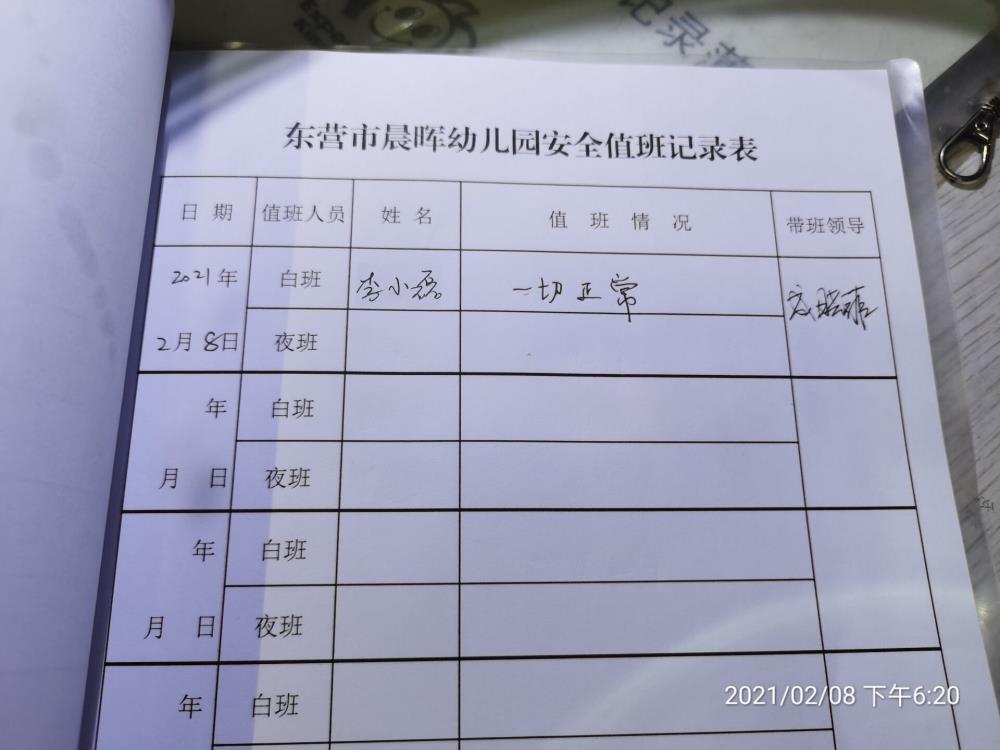 记录簿
东营市晨晖幼儿园安全值班记录表
日 期 值班人员 姓 名 值 班 情 况 带班领导
2021年 白班 李小磊 一切正常
2月8日 夜班
年 白班
月 日 夜班
年 白班
月 日 夜班
年 白班
2021/02/08 下午6:20